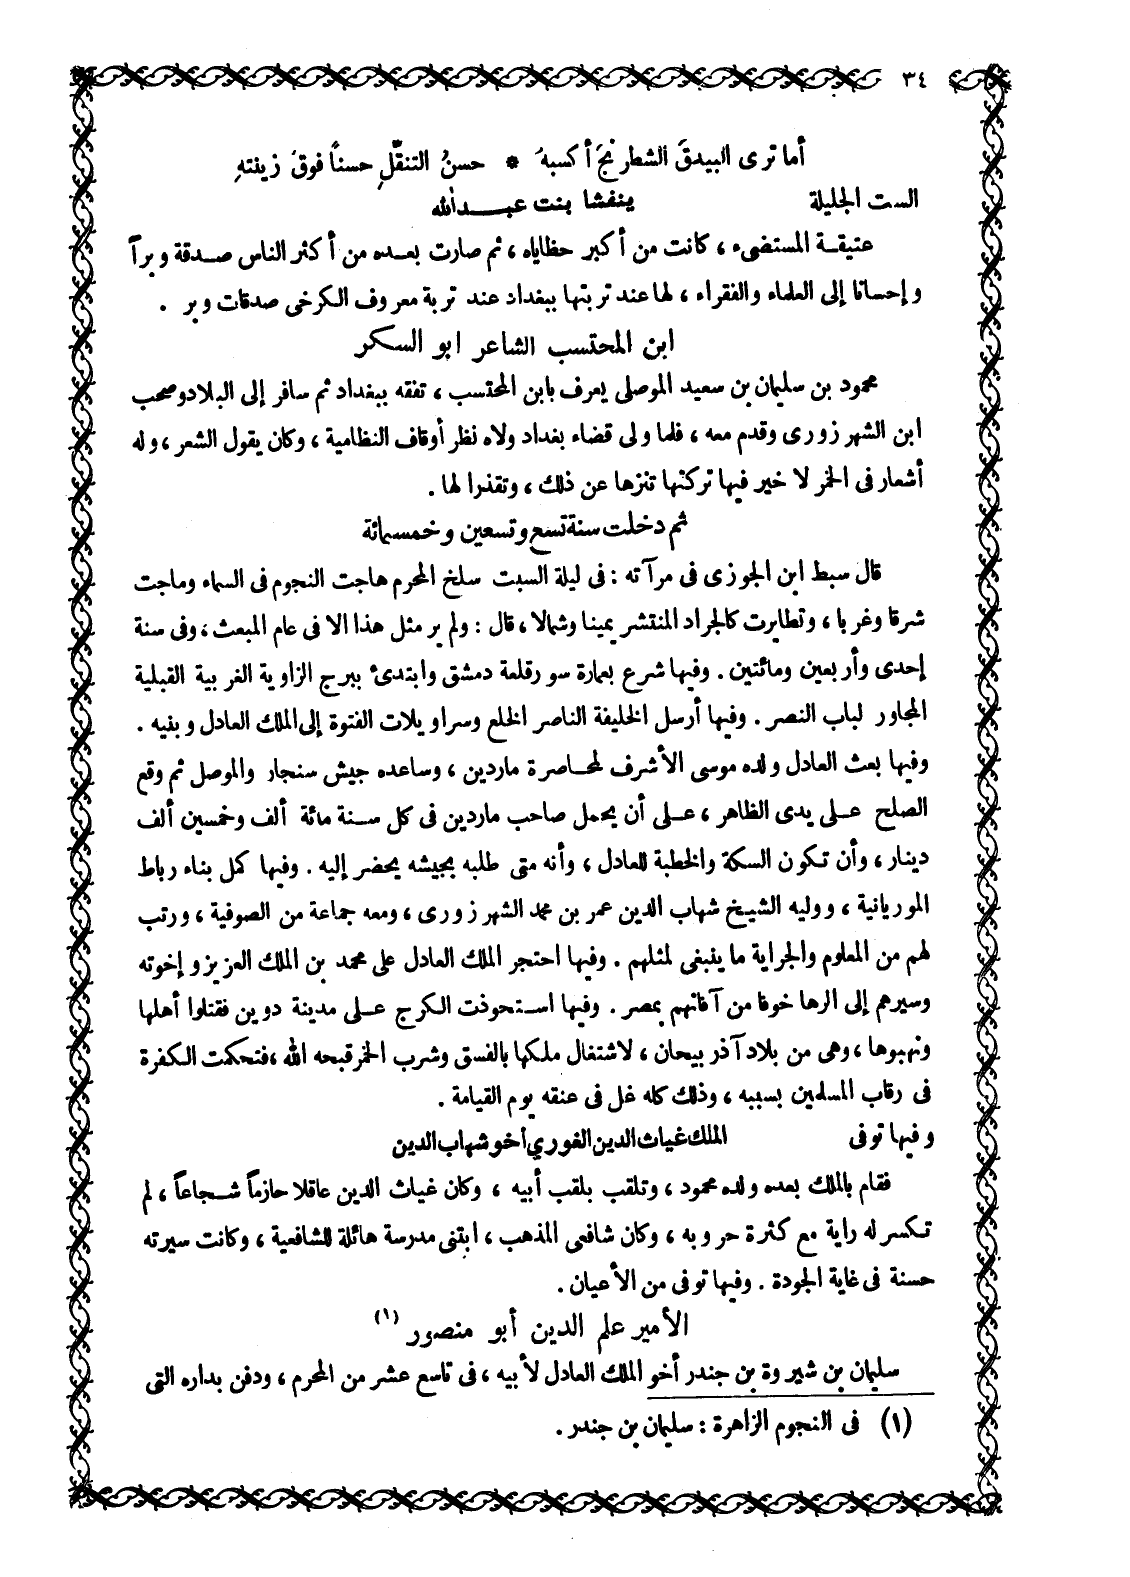 ٣٤
أما ترى البيدقَ الشطرنجَ أكسبهُ * حسنُ التنقّلِ حسناً فوقَ زينتهِ
الست الجليلة ينفشا بنت عبدالله
عتيقة المستضىء ، كانت من أكبر حظاياه ، ثم صارت بعده من أكثر الناس صدقة وبراً
وإحسانا إلى العلماء والفقراء ، لها عند تربتها ببغداد عند تربة معروف الكرخى صدقات وبر .
ابن المحتسب الشاعر ابو السكر
محمود بن سليمان بن سعيد الموصلى يعرف بابن المحتسب ، تفقه ببغداد ثم سافر إلى البلاد وصحب
ابن الشهر زورى وقدم معه ، فلما ولى قضاء بغداد ولاه نظر أوقاف النظامية ، وكان يقول الشعر ، وله
أشعار فى الخمر لا خير فيها تركتها تنزها عن ذلك ، وتقذرا لها .
ثم دخلت سنة تسع وتسعين وخمسمائة
قال سبط ابن الجوزى فى مرآته : فى ليلة السبت سلخ المحرم هاجت النجوم فى السماء وماجت
شرقا وغربا ، وتطايرت كالجراد المنتشر يمينا وشمالا ، قال : ولم ير مثل هذا الا فى عام المبعث ، وفى سنة
إحدى وأربعين ومائتين . وفيها شرع بعمارة سور قلعة دمشق وابتدئ ببرج الزاوية الغربية القبلية
المجاور لباب النصر . وفيها أرسل الخليفة الناصر الخلع وسراويلات الفتوة إلى الملك العادل وبنيه .
وفيها بعث العادل ولده موسى الأشرف لمحاصرة ماردين ، وساعده جيش سنجار والموصل ثم وقع
الصلح على يدى الظاهر ، على أن يحمل صاحب ماردين فى كل سنة مائة ألف وخمسين ألف
دينار ، وأن تكون السكة والخطبة للعادل ، وأنه متى طلبه بجيشه يحضر إليه . وفيها كمل بناء رباط
الموريانية ، ووليه الشيخ شهاب الدين عمر بن محمد الشهر زورى ، ومعه جماعة من الصوفية ، ورتب
لهم من المعلوم والجراية ما ينبغى لمثلهم . وفيها احتجر الملك العادل على محمد بن الملك العزيز وإخوته
وسيرهم إلى الرها خوفا من آفاتهم بمصر . وفيها استحوذت الكرج على مدينة دوين فقتلوا أهلها
ونهبوها ، وهى من بلاد آذربيحان ، لاشتغال ملكها بالفسق وشرب الخمر قبحه الله ، فتحكمت الكفرة
فى رقاب المسلمين بسببه ، وذلك كله غل فى عنقه يوم القيامة .
وفيها توفى الملك غياث الدين الغوري أخو شهاب الدين
فقام بالملك بعده ولده محمود ، وتلقب بلقب أبيه ، وكان غياث الدين عاقلا حازماً شجاعاً ، لم
تكسر له راية مع كثرة حروبه ، وكان شافعى المذهب ، ابتنى مدرسة هائلة للشافعية ، وكانت سيرته
حسنة فى غاية الجودة . وفيها توفى من الأعيان .
الأمير علم الدين أبو منصور (١)
سليمان بن شيروة بن جندر أخو الملك العادل لأبيه ، فى تاسع عشر من المحرم ، ودفن بداره التى
(١) فى النجوم الزاهرة : سليمان بن جندر .